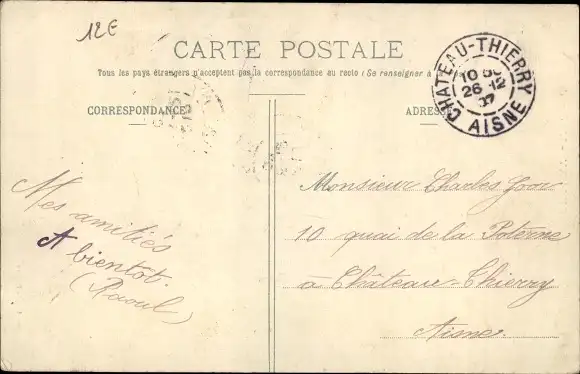 12€
CARTE POSTALE
Tous les pays étrangers n'acceptent pas la correspondance au recto (Se renseigner à
CORRESPONDANCE
ADRESSE
CHATEAU-THIERRY
10
26-12
07
AISNE
Mes amitiés
A bientôt.
(Raoul)
Monsieur Charles
10 quai de la Poterne
à Château-Thierry
Aisne.